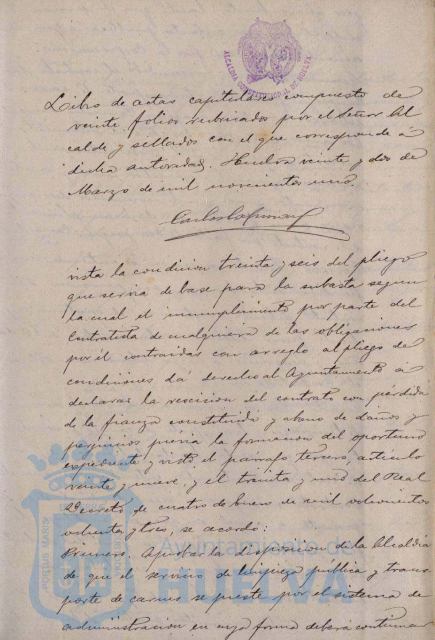 ALCALDIA CONSTITUCIONAL DE HUELVA
Libro de actas capitulares compuesto de
veinte folios rubricados por el Señor Al
calde y sellados con el que corresponde á
dicha autoridad. Huelva veinte y dos de
Marzo de mil novecientos uno.
vista la condicion treinta y seis del pliego
que servia de base para la subasta segun
la cual el incumplimiento por parte del
Contratista de cualquiera de las obligaciones
por él contraidas con arreglo al pliego de
condiciones dá derecho al Ayuntamiento á
declarar la rescision del contrato con pérdida
de la fianza constituida y abono de daños y
perjuicios previa la formacion del oportuno
expediente y visto el párrafo tercero, artículo
veinte y nueve, y el treinta y uno del Real
Decreto de cuatro de Enero de mil ochocientos
ochenta y tres, se acordó:
Primero. Aprobar la disposicion de la Alcaldia
de que el servicio de limpieza pública y trans
porte de carnes se preste por el sistema de
administracion en cuya forma deberá continuar
Ayuntamiento de
HUELVA
PORTUS MARIS